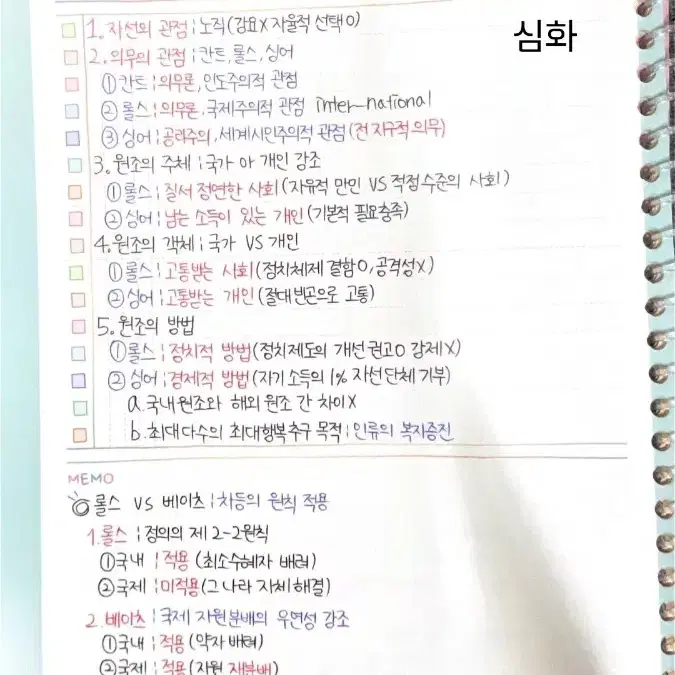 심화
1. 자선의 관점 : 노직(강요X 자율적 선택O)
2. 의무의 관점 : 칸트, 롤스, 싱어
① 칸트 : 의무론, 인도주의적 관점
② 롤스 : 의무론, 국제주의적 관점 inter-national
③ 싱어 : 공리주의, 세계시민주의적 관점(전 지구적 의무)
3. 원조의 주체 : 국가 아 개인 강조
① 롤스 : 질서 정연한 사회(자유적 만민 VS 적정 수준의 사회)
② 싱어 : 남는 소득이 있는 개인(기본적 필요충족)
4. 원조의 객체 : 국가 VS 개인
① 롤스 : 고통받는 사회(정치체제 결함O, 공격성X)
② 싱어 : 고통받는 개인(절대빈곤으로 고통)
5. 원조의 방법
① 롤스 : 정치적 방법(정치제도의 개선 권고O 강제X)
② 싱어 : 경제적 방법(자기 소득의 1% 자선단체 기부)
a. 국내원조와 해외 원조 간 차이X
b. 최대다수의 최대행복추구 목적 : 인류의 복지증진
MEMO
롤스 VS 베이츠 : 차등의 원칙 적용
1. 롤스 : 정의의 제 2-2원칙
① 국내 : 적용 (최소수혜자 배려)
② 국제 : 미적용(그 나라 자체 해결)
2. 베이츠 : 국제 자원분배의 우연성 강조
① 국내 : 적용 (약자 배려)
② 국제 : 적용 (자원 재분배)